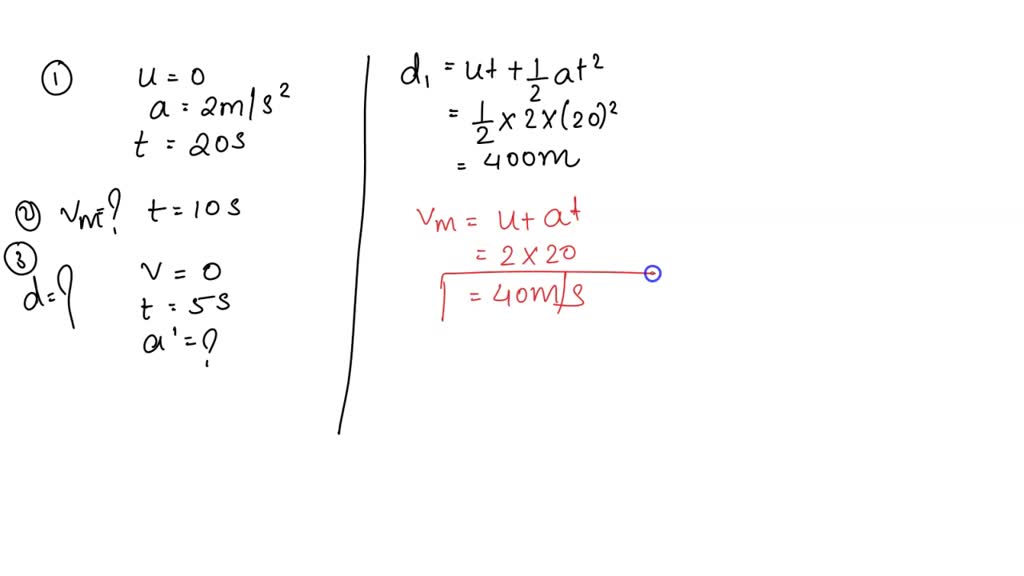 ① u = 0
a = 2m/s²
t = 20s
② Vm=? t = 10s
③ v = 0
d=? t = 5s
a' = ?
d₁ = ut + 1/2 at²
= 1/2 × 2 × (20)²
= 400m
Vm = u + at
= 2 × 20
= 40m/s